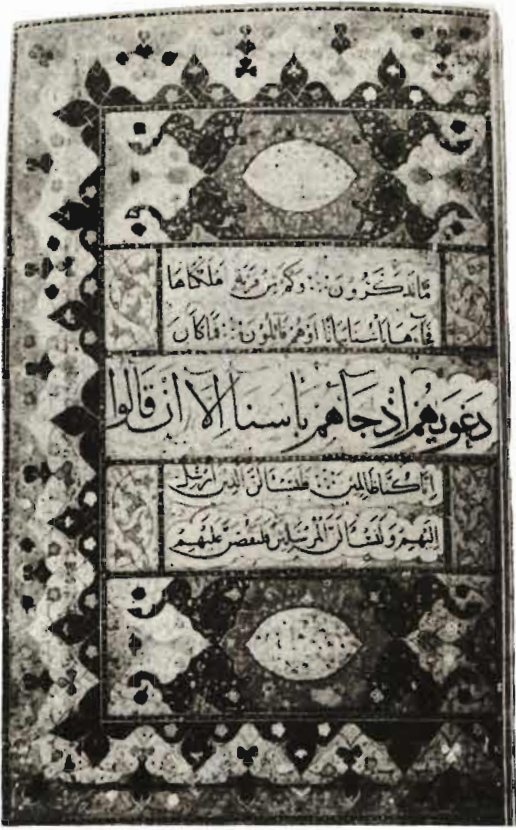 مَا تَذَكَّرُونَ ۞ وَكَمْ مِنْ قَرْيَةٍ أَهْلَكْنَاهَا
فَجَاءَهَا بَأْسُنَا بَيَاتًا أَوْ هُمْ قَائِلُونَ ۞ فَمَا كَانَ
دَعْوَيهُمْ إِذْ جَآءَهُمْ بَأْسُنَا إِلَّا أَنْ قَالُوا
إِنَّا كُنَّا ظَالِمِينَ ۞ فَلَنَسْئَلَنَّ الَّذِينَ أُرْسِلَ
إِلَيْهِمْ وَلَنَسْئَلَنَّ الْمُرْسَلِينَ فَلَنَقُصَّنَّ عَلَيْهِمْ